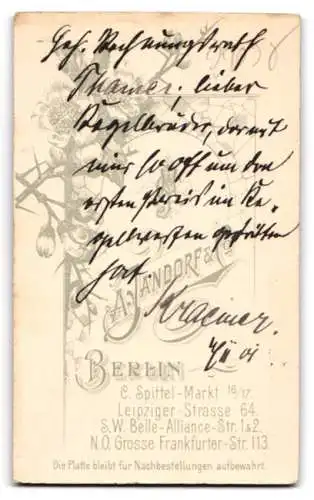 Geh. Rechnungsrath
Thamer, lieber
Kegelbruder, der mit
mir so oft um den
ersten Preis im Ke-
gelwerfen gestritten
hat.
Kraemer
A. JANDORF & Co
BERLIN
C. Spittel-Markt 16/17
Leipziger-Strasse 64.
S.W. Belle-Alliance-Str. 1&2.
N.O. Grosse Frankfurter-Str. 113
Die Platte bleibt für Nachbestellungen aufbewahrt.